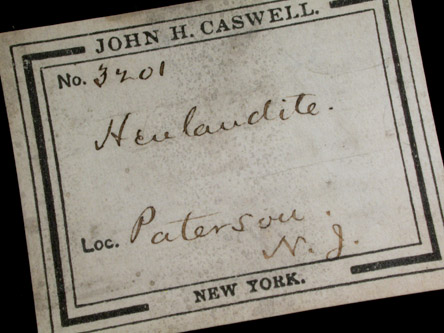 JOHN H. CASWELL.
No. 3201
Heulandite.
Loc. Paterson.
N. J.
NEW YORK.